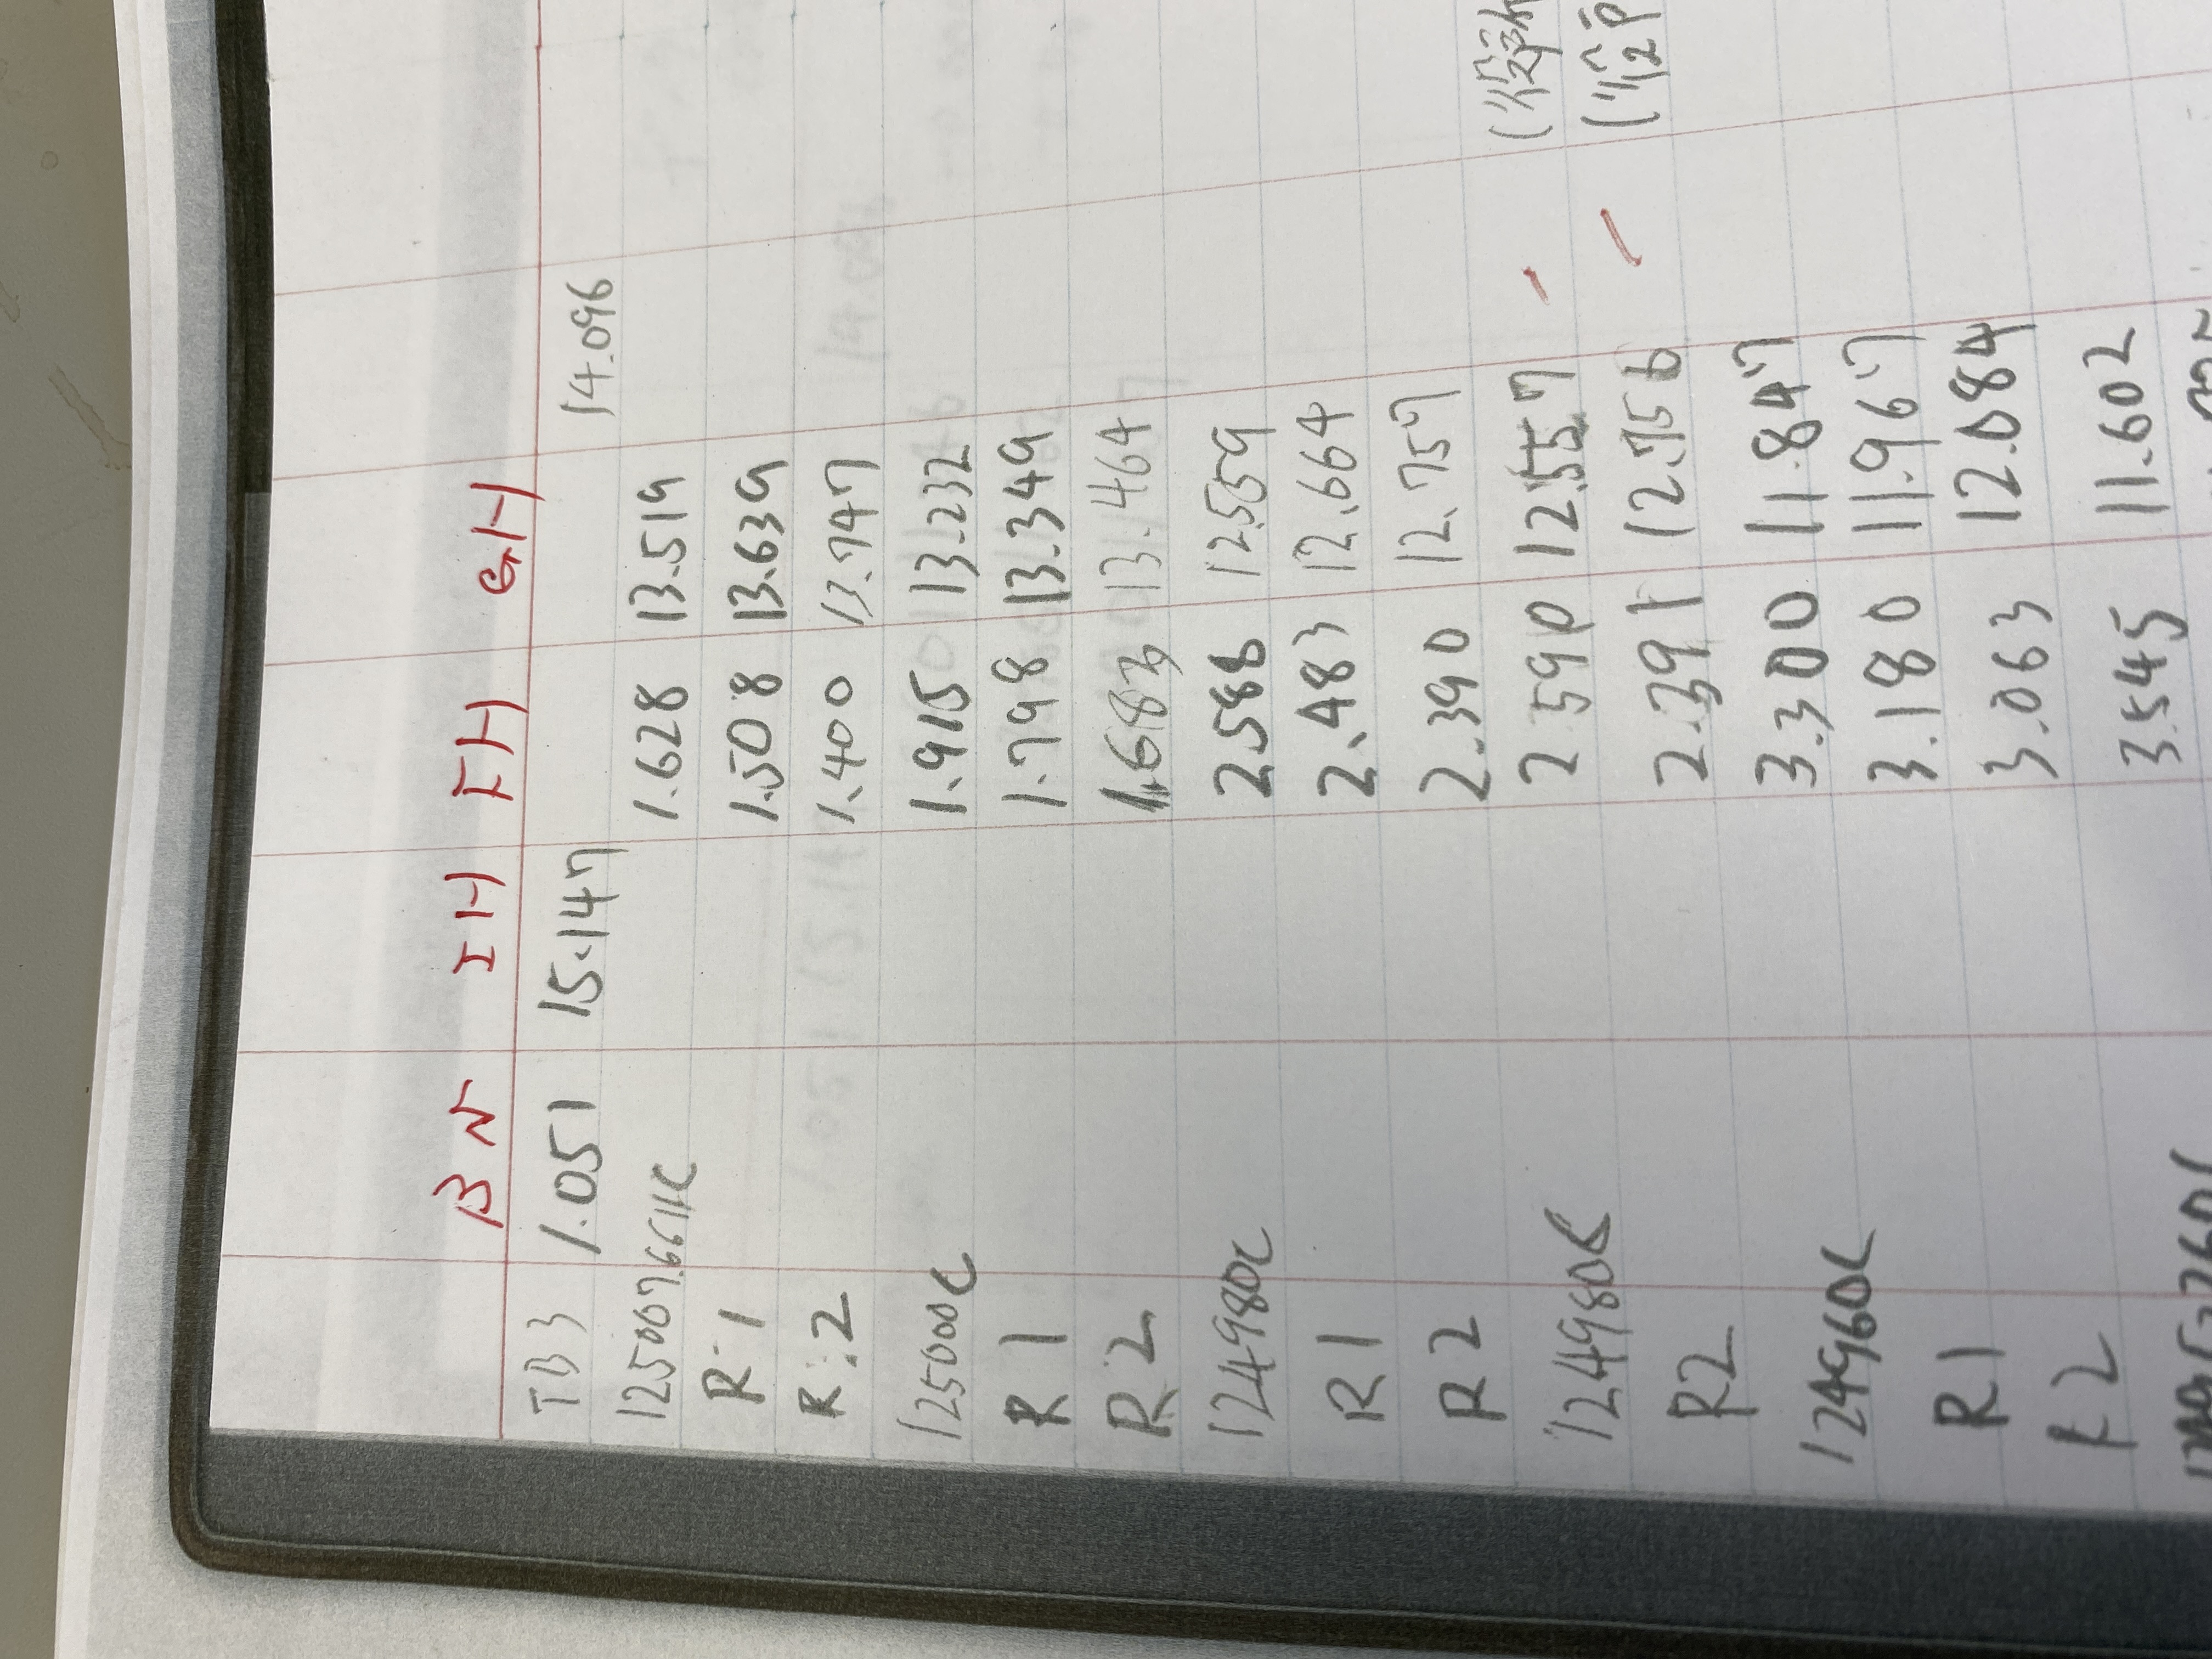 BN IH FH GH
TB3 1.051 15.147 14.096
125007.661K 1.628 13.519
R 1 1.508 13.639
R 2 1.400 13.747
125000C 1.915 13.232
R 1 1.798 13.349
R 2 1.683 13.464
124980C 2.588 12.559
R 1 2.483 12.664
R 2 2.390 12.757
124980C 2.590 12.557
R2 2.391 12.756
124960C 3.300 11.847
R 1 3.180 11.967
R 2 3.063 12.084
3.545 11.602